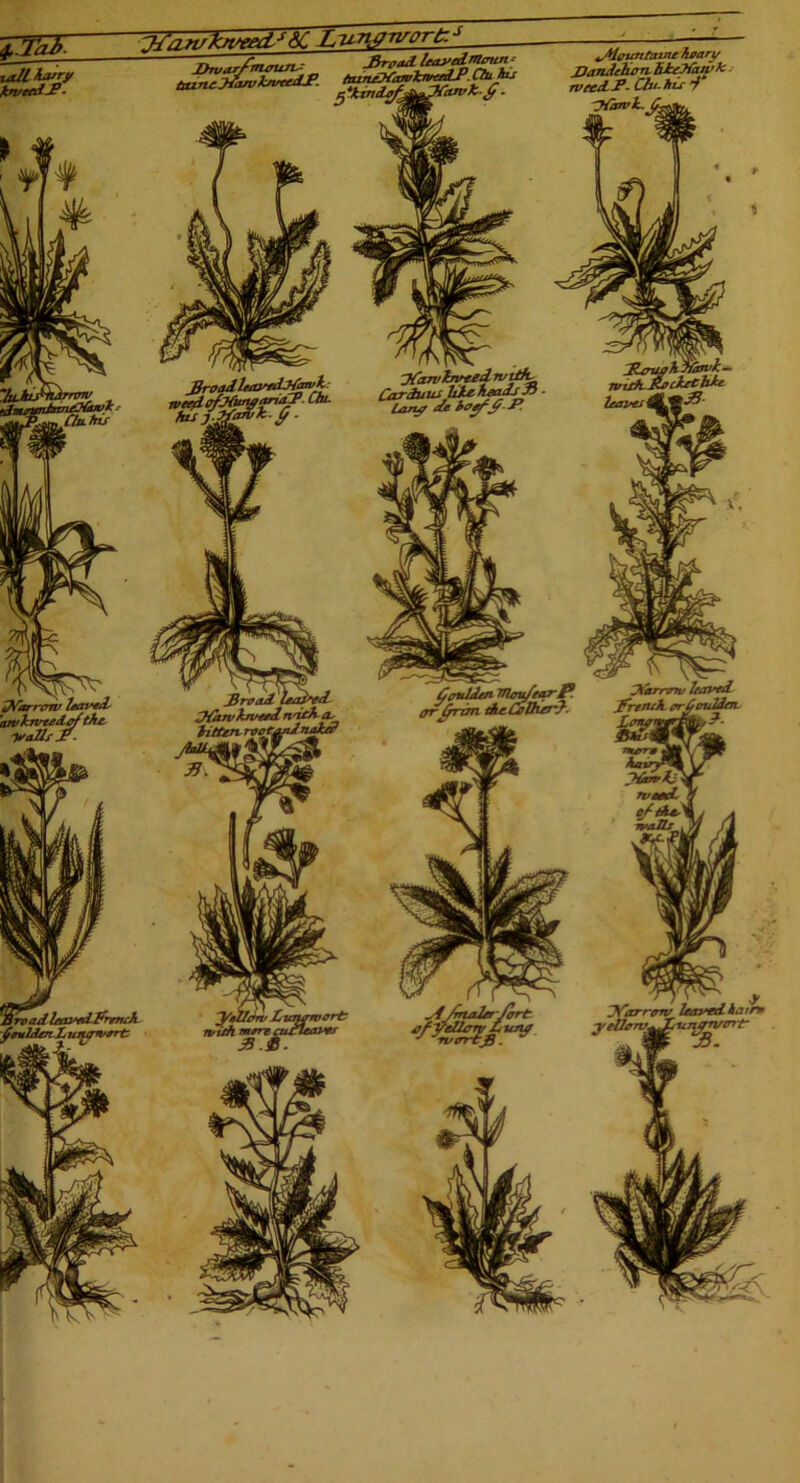 4.Tab.
Hawkweed.s & Lungwort.s
Small hairy
kweed P.
Dwarf moun-
taine Hawkweed P.
Broad leaved moun-
taine Hawkweed P. Clu. his
5 kind of Hawk. g.
Mountaine hoary
Dandelion like Hawk-
weed P. Clu. his 7
Hawk. g.
Clu. his Narrow
ed mountaine Hawk-
P. Clu. his
Broad leaved Hawk-
weed of Hungaria P. Clu.
his j. Hawk. g.
Hawkweed with
Carduus like heads B.
Lang de boef g. P.
Rough Hawk-
with Rocket like
leaves B.
Narrow leaved
awkweed of the
Walls P.
Broad leaved
Hawkweed with a
bitten root and naked
stalk
B.
Goulden Mous ear P.
or Grim the Colliar J.
Narrow leaved
French or Goulden
Longwort J.
more
hairy
Hawk-
weed
of the
walls
P.
Broad leaved French
Goulden Lungwort
J.
Yellow Lungwort
with more cut leaves
B. B.
A smaler sort
of Yellow Lung
wort B.
Narrow leaved hairie
yellow Lungwort
B.